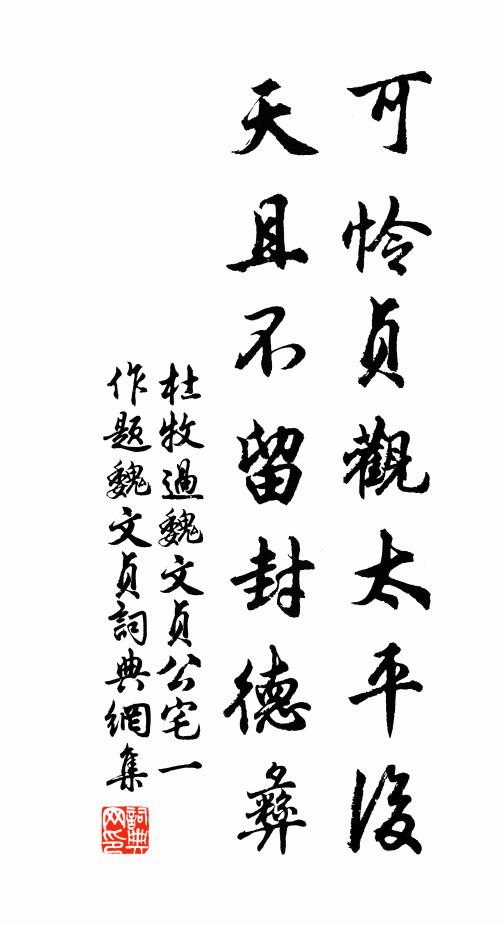 可怜贞觀太平後
天且不留封德彝
杜牧過魏文贞公宅一
作题魏文贞詞典網集
詞典
网印